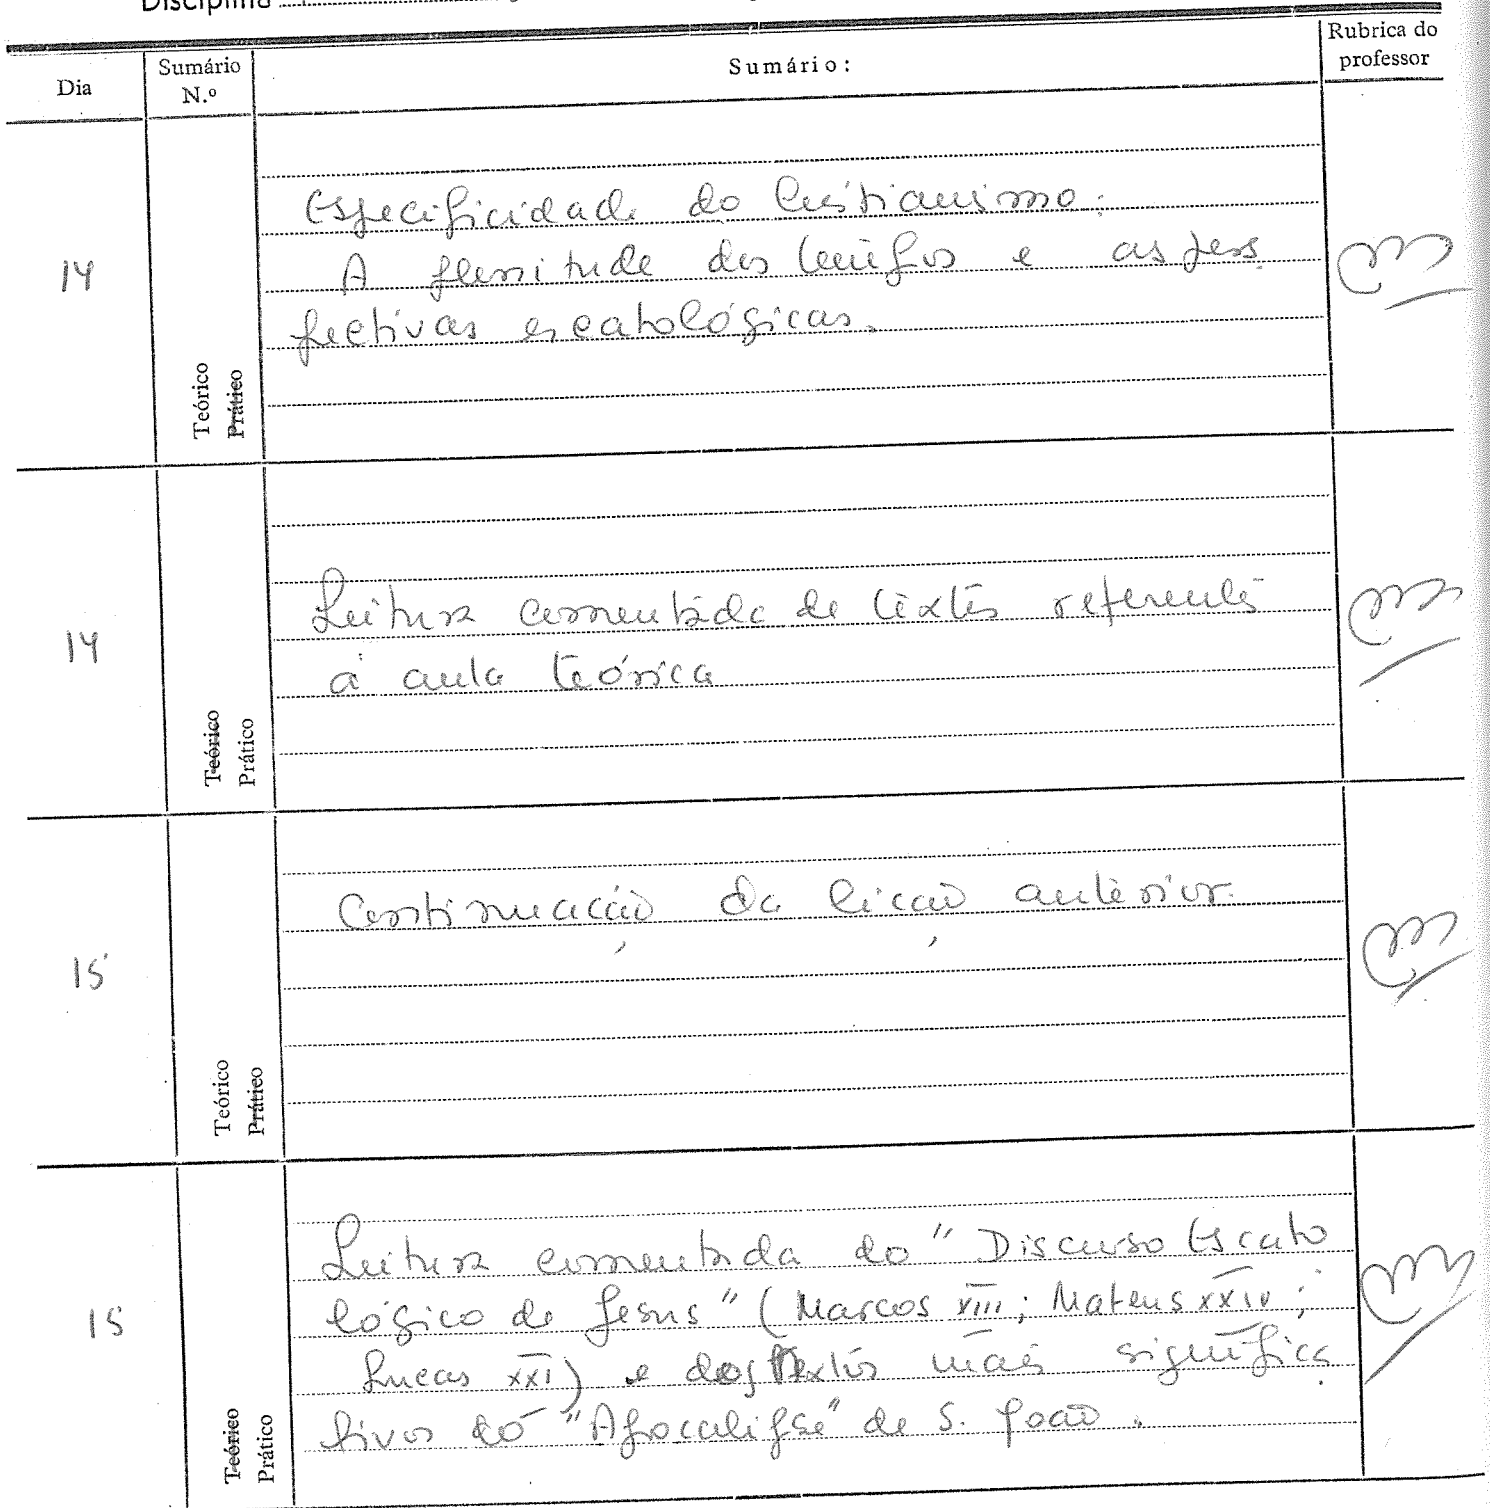 Disciplina
Dia
Sumário N.º
Sumário:
Rubrica do professor
14
Teórico
Prático
Especificidade do Cristianismo:
A plenitude dos tempos e as pers
pectivas escatológicas.
14
Teórico
Prático
Leitura comentada de textos referentes
à aula teórica
15
Teórico
Prático
Continuação da lição anterior.
15
Teórico
Prático
Leitura comentada do "Discurso Escato
lógico de Jesus" (Marcos XIII; Mateus XXIV;
Lucas XXI) e dos textos mais significa
tivos do "Apocalipse" de S. João.